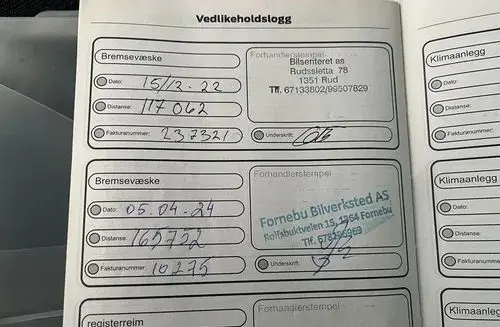 Vedlikeholdslogg
Bremsevæske
Dato: 15/12.22
Distanse: 117062
Fakturanummer: 237321
Forhandlerstempel
Bilsenteret as
Rudssletta 78
1351 Rud
Tlf. 67133802/99507829
Underskrift:
Klimaanlegg
Dato:
Distanse:
Fakturanummer:
Bremsevæske
Dato: 05.04.24
Distanse: 165732
Fakturanummer: 10275
Forhandlerstempel
Fornebu Bilverksted AS
Rolfsbuktveien 15, 1364 Fornebu
Underskrift:
Klimaanlegg
Dato:
Distanse:
Fakturanummer:
registerreim
Forhandlerstempel
Klimaanleg